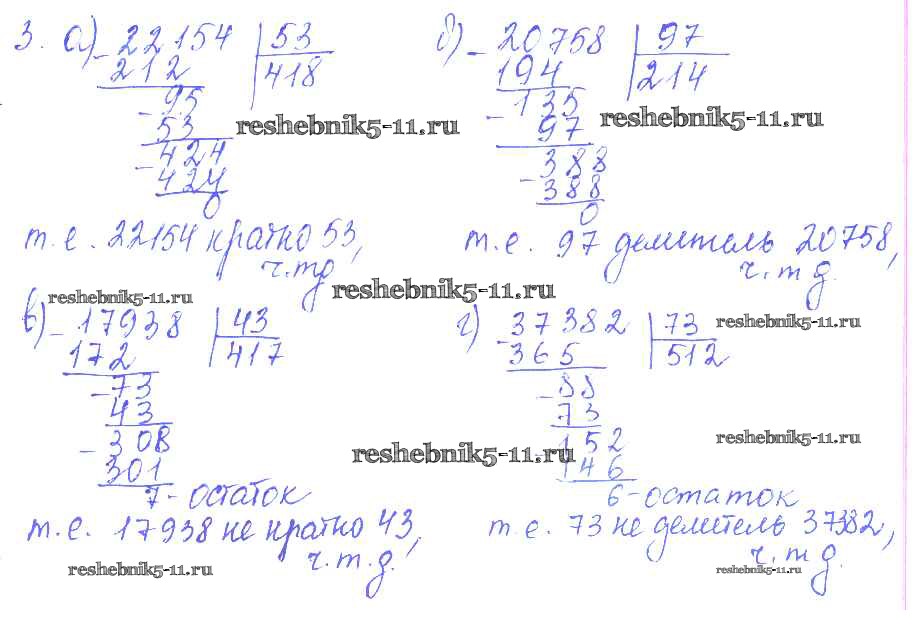 3. а) 22154 | 53
212 | 418
- 95
53
- 424
424
0
т.е. 22154 кратно 53,
ч.тд
б) - 20758 | 97
194 | 214
- 135
97
- 388
388
0
т.е. 97 делитель 20758,
ч.т д.
reshebnik5-11.ru
reshebnik5-11.ru
reshebnik5-11.ru
reshebnik5-11.ru
в) - 17938 | 43
172 | 417
- 73
43
- 308
301
7 - остаток
т.е. 17938 не кратно 43,
ч.т.д.
г) - 37382 | 73
365 | 512
- 88
73
- 152
146
6 - остаток
т е. 73 не делитель 37382,
ч.т д.
reshebnik5-11.ru
reshebnik5-11.ru
reshebnik5-11.ru
reshebnik5-11.ru
reshebnik5-11.ru